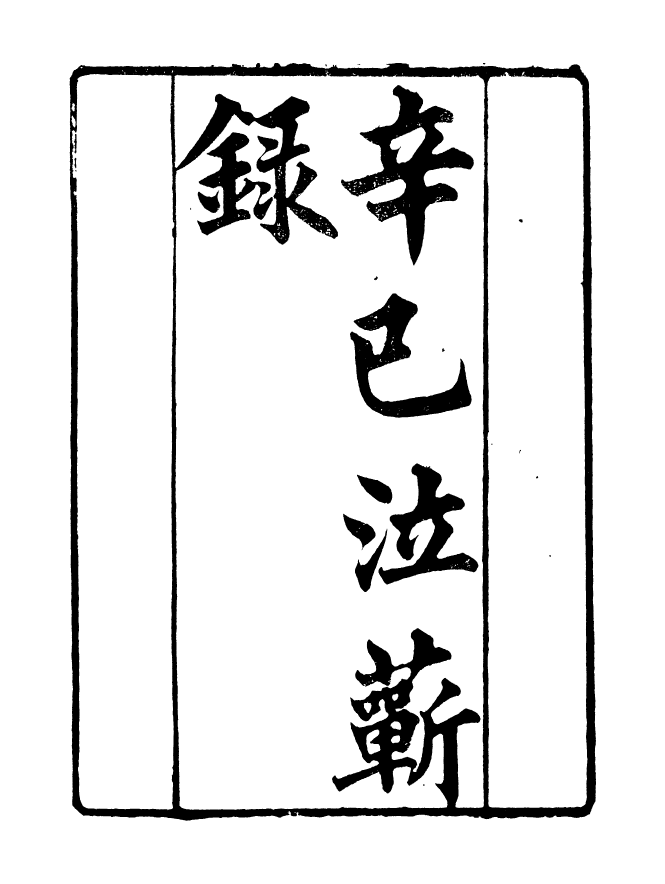 辛巳泣蘄
錄